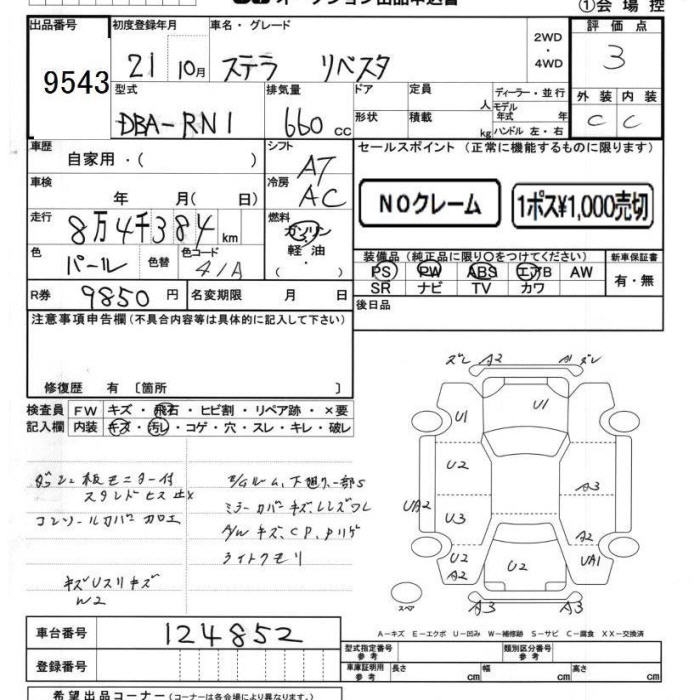 オークション出品申込書
①会場控
出品番号
9543
初度登録年月
21 10月
車名・グレード
ステラ リベスタ
2WD
・
4WD
評価点
3
型式
DBA-RN1
排気量
660 cc
ドア
形状
定員
人
積載
kg
ディーラー・並行
モデル
年式 年
ハンドル 左・右
外装 内装
C C
車歴
自家用・( )
シフト
AT
車検
年 月( 日)
冷房
AC
走行
8万4千384 km
燃料
ガソリン
軽油
色
パール
色替
色コード
41A
R券
9850 円
名変期限 月 日
セールスポイント (正常に機能するものに限ります)
NOクレーム
1ポス¥1,000売切
装備品 (純正品に限り○をつけてください)
新車保証書
PS PW ABS エアB AW
SR ナビ TV カワ
有・無
後日品
注意事項申告欄(不具合内容等は具体的に記入して下さい)
修復歴 有 〔箇所 〕
検査員
記入欄
FW キズ・飛石・ヒビ割・リペア跡・×要
内装 キズ・汚レ・コゲ・穴・スレ・キレ・破レ
ダッシュ板モニター付
スタンドビス止メ
コンソールカバー加工
キズUスリキズ
W2
E/Gルーム、下廻り一部S
ミラーカバーキズ、レンズワレ
A/Wキズ、CP、ハゲ
ライトクモリ
ズレ A2 A1 ズレ
U1 U1
U2
A3
UA2
U3
A2
U2
A2
U2
UA1
スペア
A3 A3
A-キズ E-エクボ U-凹み W-補修跡 S-サビ C-腐食 XX-交換済
車台番号
124852
登録番号
型式指定番号
参考
類別区分番号
参考
車庫証明用
参考
長さ cm 幅 cm 高さ cm
希望出品コーナー(コーナーは各会場により異なります。)